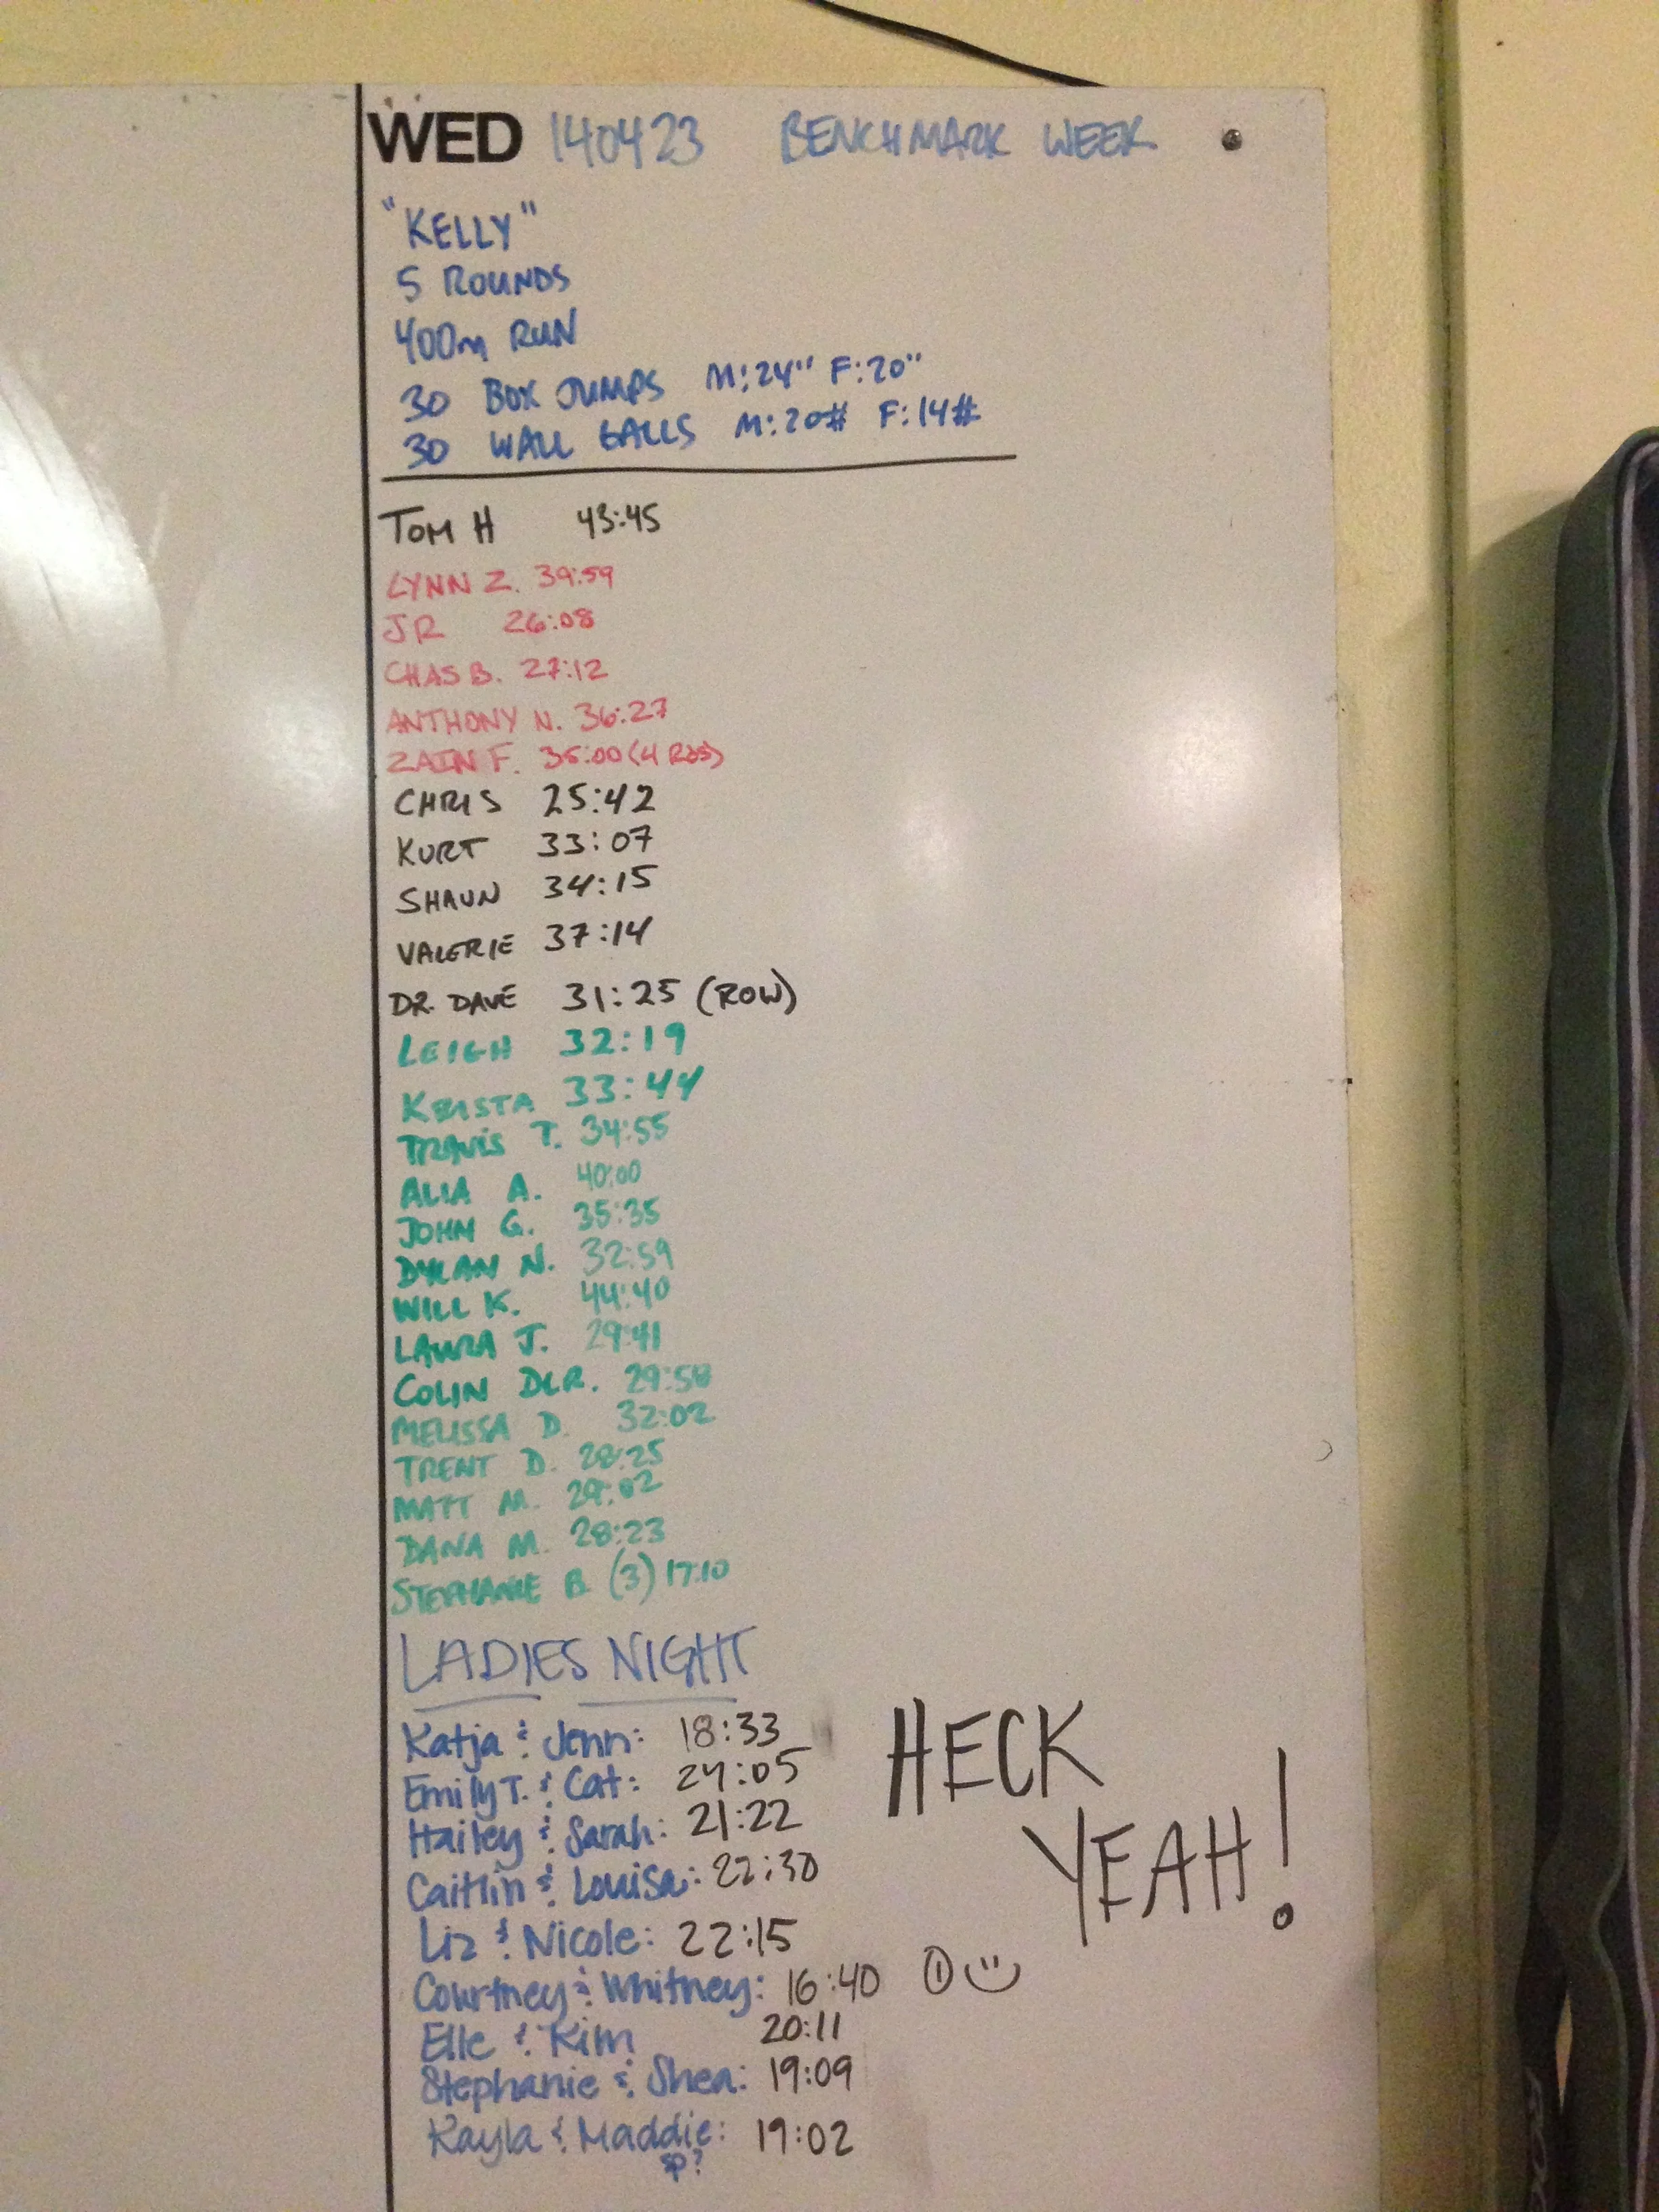 WED 140423 BENCHMARK WEEK
"KELLY"
5 ROUNDS
400m RUN
30 BOX JUMPS M:24" F:20"
30 WALL BALLS M:20# F:14#
TOM H 43:45
LYNN Z. 39:59
JR 26:08
CHAS B. 27:12
ANTHONY N. 36:27
ZAIN F. 35:00 (4 RDS)
CHRIS 25:42
KURT 33:07
SHAUN 34:15
VALERIE 37:14
DR. DAVE 31:25 (ROW)
LEIGH 32:19
KRISTA 33:44
TRAVIS T. 34:55
ALIA A. 40:00
JOHN G. 35:35
DYLAN N. 32:59
WILL K. 44:40
LAURA J. 29:41
COLIN DLR. 29:58
MELISSA D. 32:02
TRENT D. 28:25
MATT M. 29:02
DANA M. 28:23
STEPHANIE B. (3) 17:10
LADIES NIGHT
Katja & Jenn: 18:33
Emily T. & Cat: 24:05
Hailey & Sarah: 21:22
Caitlin & Louisa: 22:30
Liz & Nicole: 22:15
Courtney & Whitney: 16:40 ①
Elle & Kim 20:11
Stephanie & Shea: 19:09
Kayla & Maddie: 19:02
sp?
HECK
YEAH!